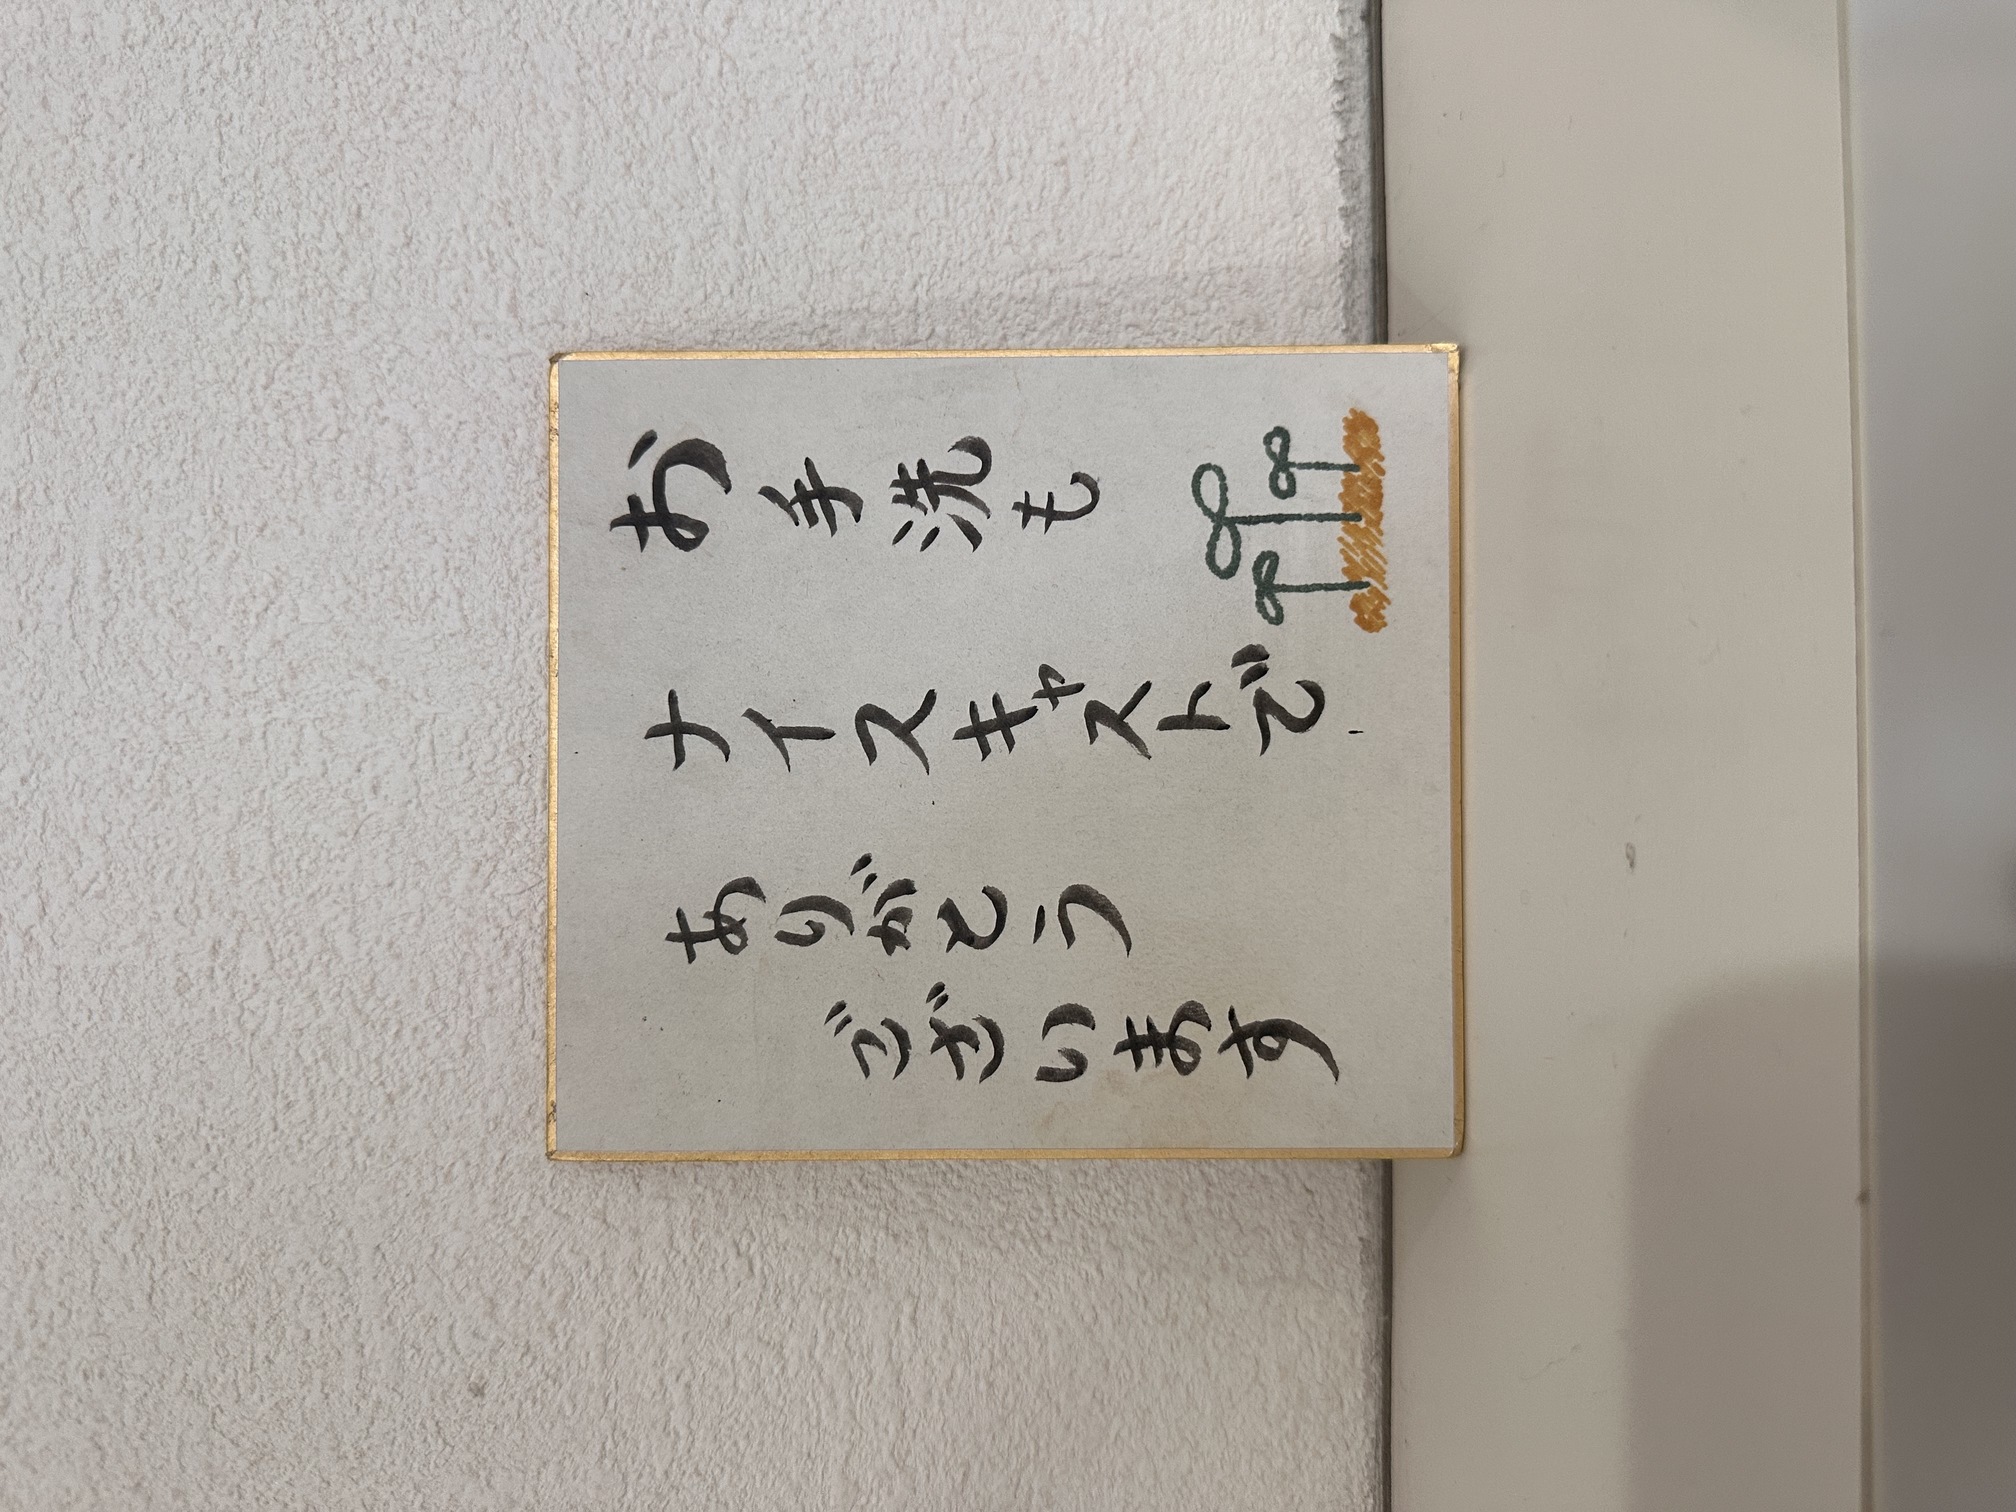 お手洗も
ナイスキャストで
ありがとう
ございます